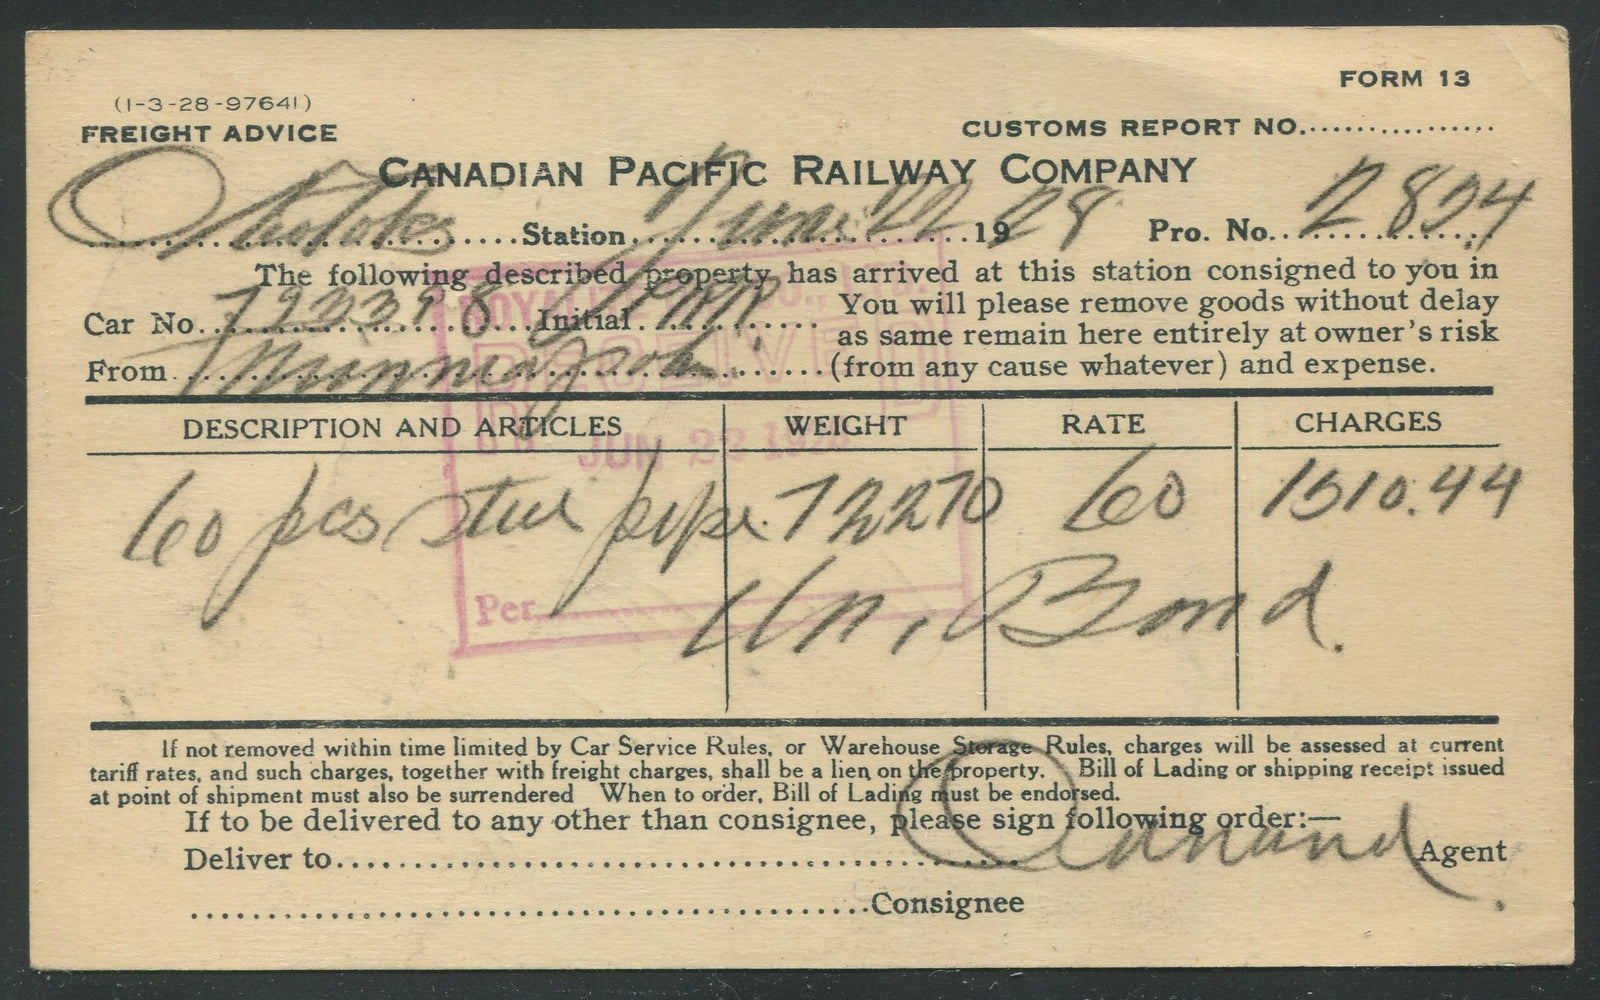 FORM 13
(1-3-28-97641)
FREIGHT ADVICE
CUSTOMS REPORT NO.................
CANADIAN PACIFIC RAILWAY COMPANY
Okotoks Station June 22 1928 Pro. No. 2824
The following described property has arrived at this station consigned to you in
Car No. Initial
You will please remove goods without delay
as same remain here entirely at owner's risk
From (from any cause whatever) and expense.
ROYALITE
RECEIVED
JUN 22 192
Per
DESCRIPTION AND ARTICLES WEIGHT RATE CHARGES
60 pcs steel pipe 72270 60 1510.44
In Bond.
If not removed within time limited by Car Service Rules, or Warehouse Storage Rules, charges will be assessed at current
tariff rates, and such charges, together with freight charges, shall be a lien on the property. Bill of Lading or shipping receipt issued
at point of shipment must also be surrendered When to order, Bill of Lading must be endorsed.
If to be delivered to any other than consignee, please sign following order:—
Deliver to Agent
Consignee